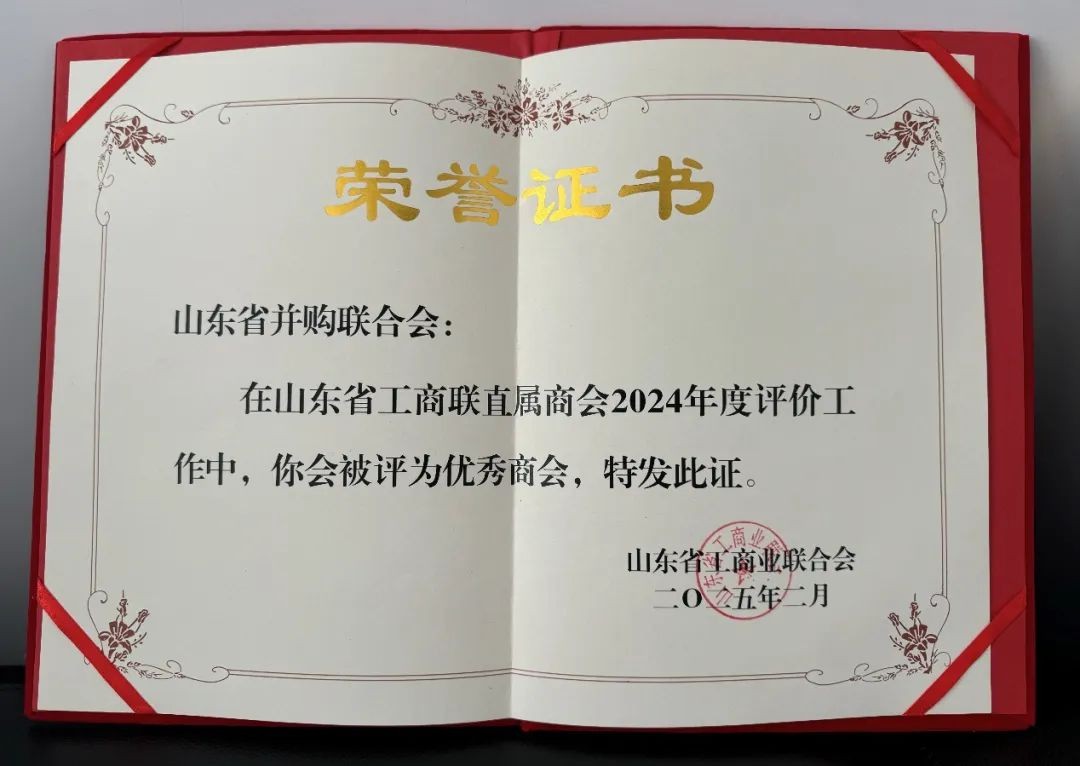 荣誉证书
山东省并购联合会：
在山东省工商联直属商会2024年度评价工
作中，你会被评为优秀商会，特发此证。
山东省工商业联合会
二〇二五年二月